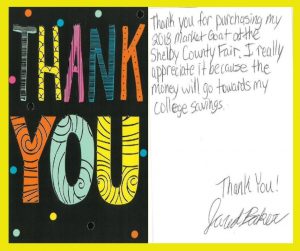 THANK
YOU
Thank you for purchasing my
2018 market Goat at the
Shelby County Fair. I really
appreciate it because the
money will go towards my
college savings.
Thank You!
Jared